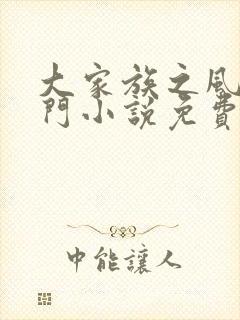 大家族之風
門小說免費
中能讓人